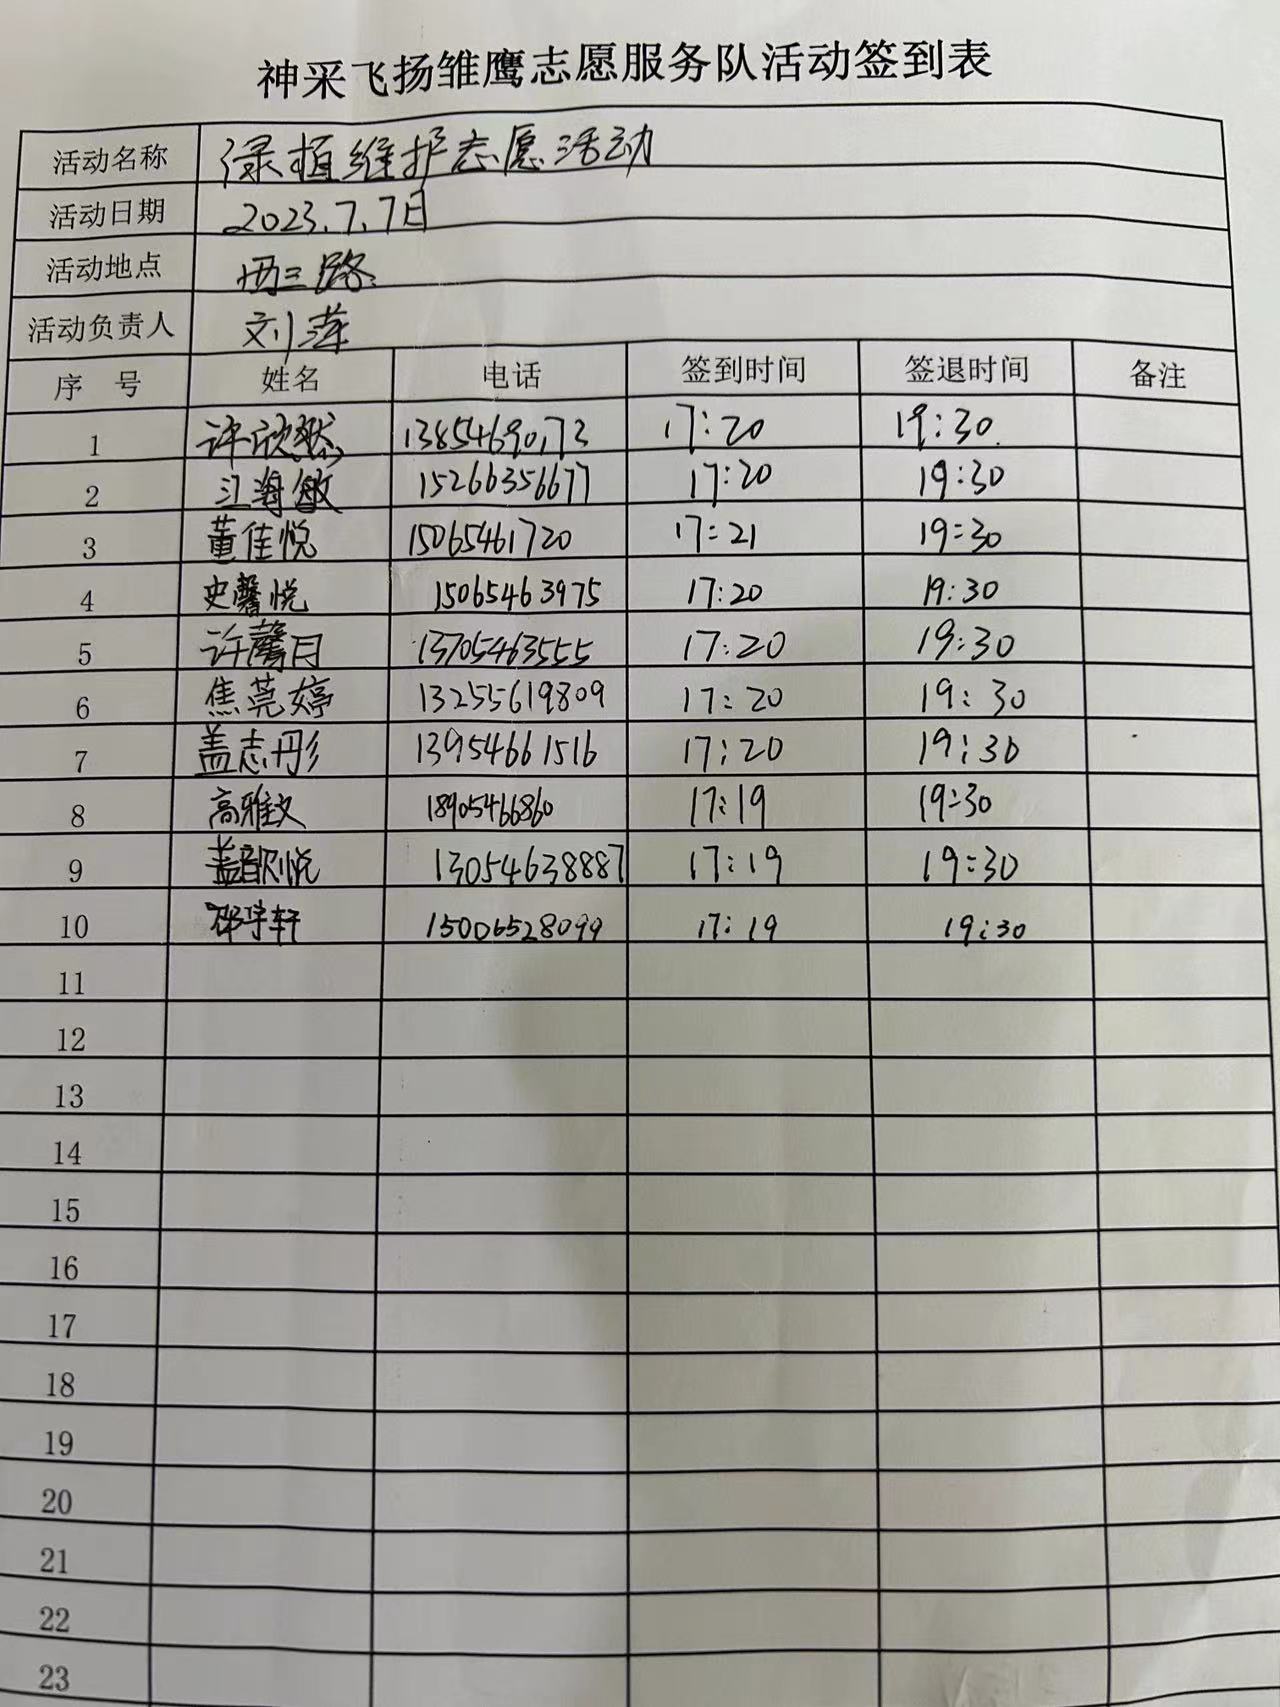 神采飞扬雏鹰志愿服务队活动签到表
活动名称 绿植维护志愿活动
活动日期 2023.7.7日
活动地点 西三路
活动负责人 刘萍
序 号 姓名 电话 签到时间 签退时间 备注
1 许欣然 13854690173 17:20 19:30
2 江海敏 15266356677 17:20 19:30
3 董佳悦 15065461720 17:21 19:30
4 史馨悦 15065463975 17:20 19:30
5 许馨月 13705463555 17:20 19:30
6 焦莞婷 13255619809 17:20 19:30
7 盖志彤 13954661516 17:20 19:30
8 高雅文 18905466860 17:19 19:30
9 盖歆悦 13054638887 17:19 19:30
10 宇轩 15006528099 17:19 19:30
11
12
13
14
15
16
17
18
19
20
21
22
23